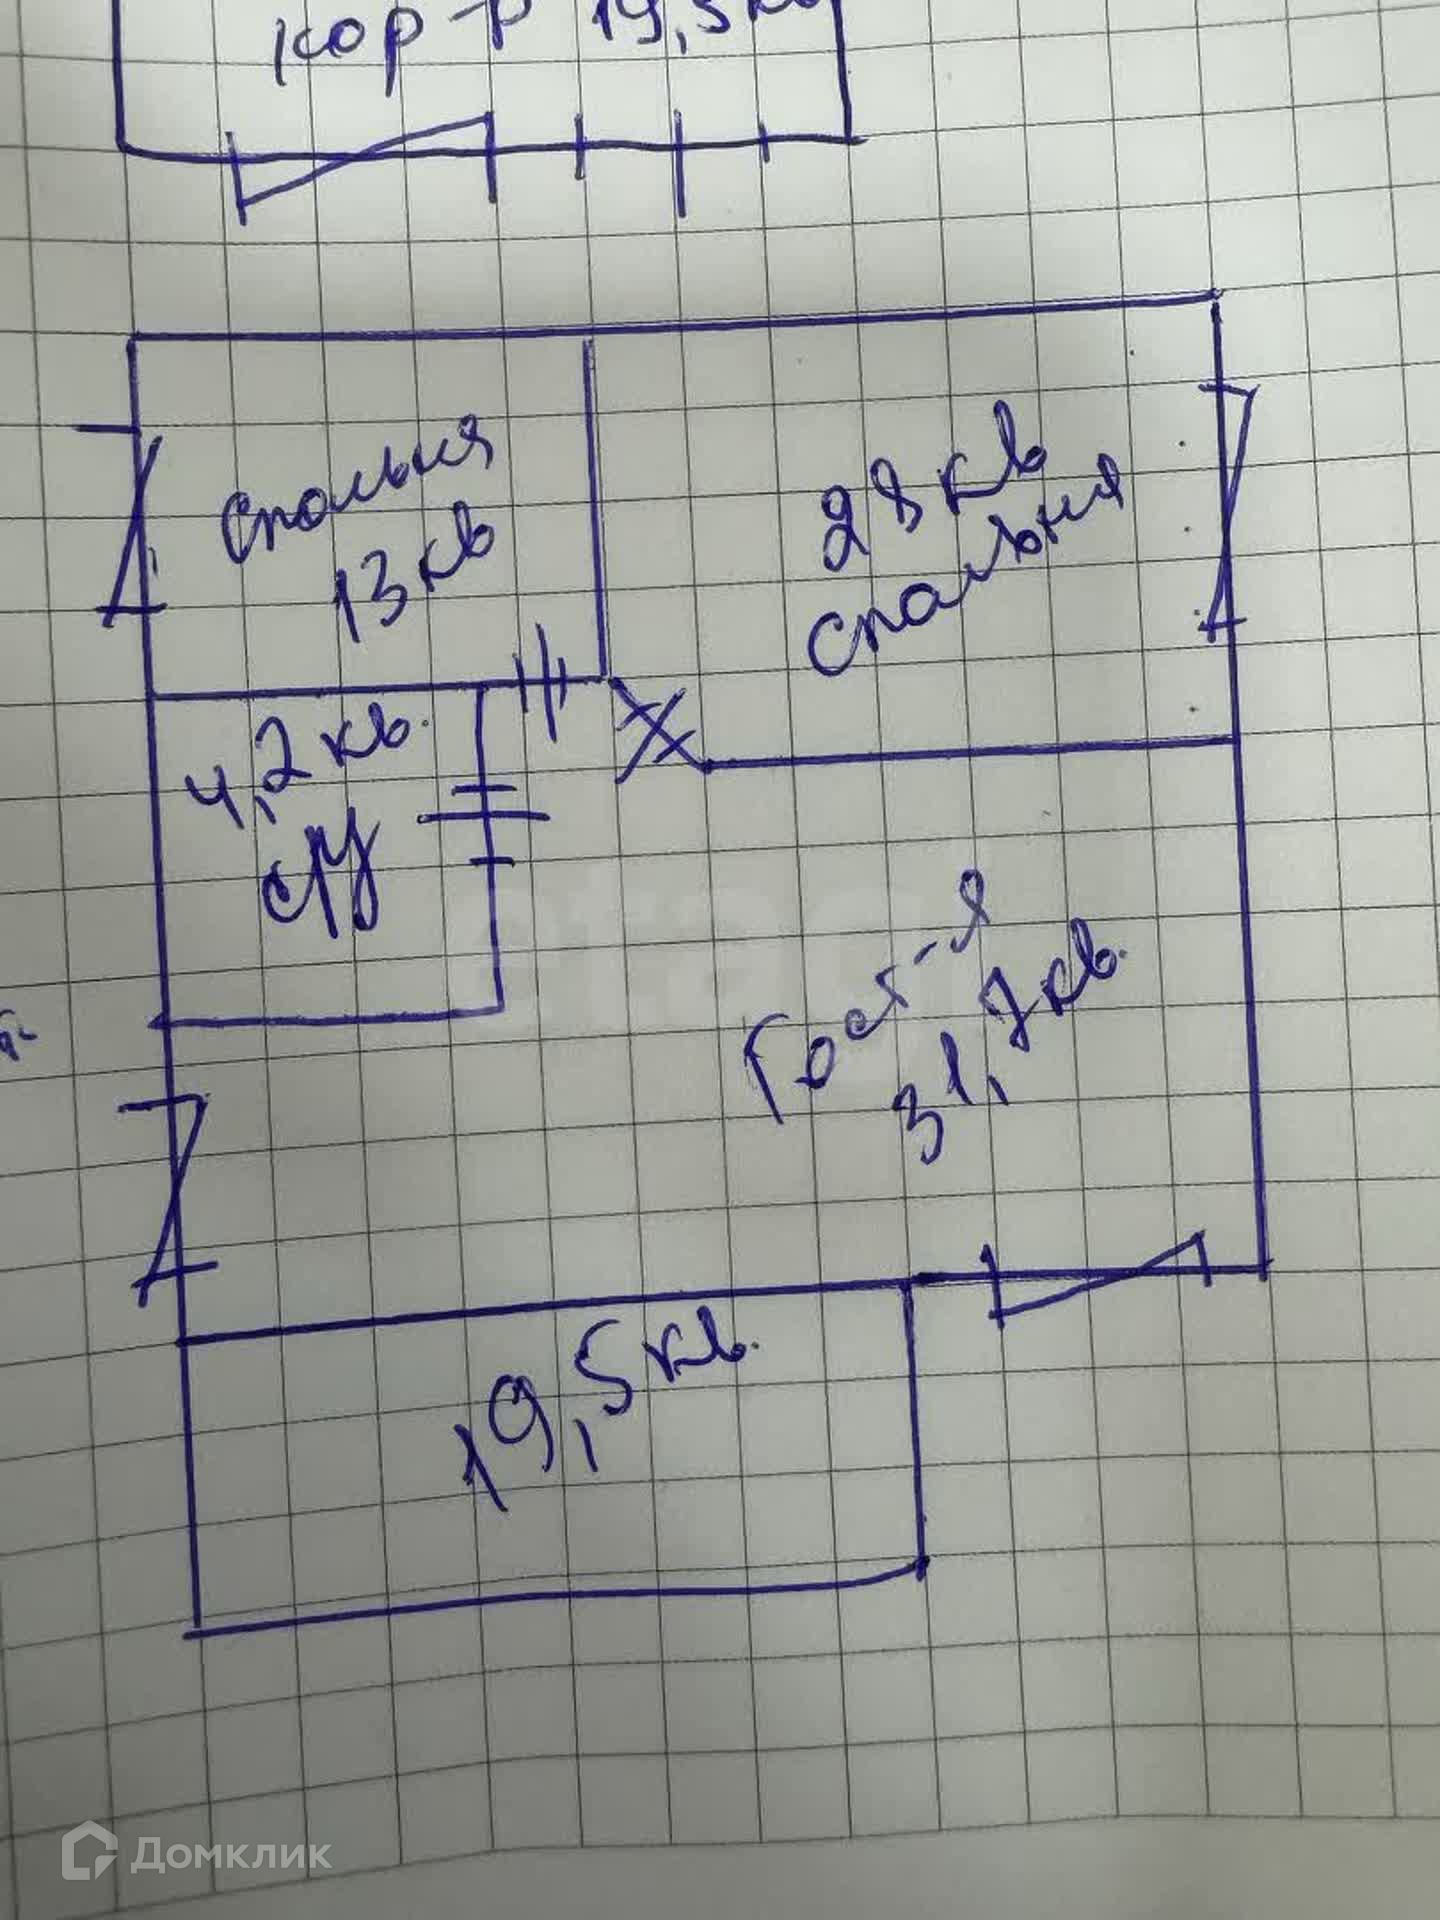 кор-р 19,5кв
спальня
13кв
28кв
спальня
4,2кв.
с/у
Гост-я
31,7кв.
19,5кв.
Домклик